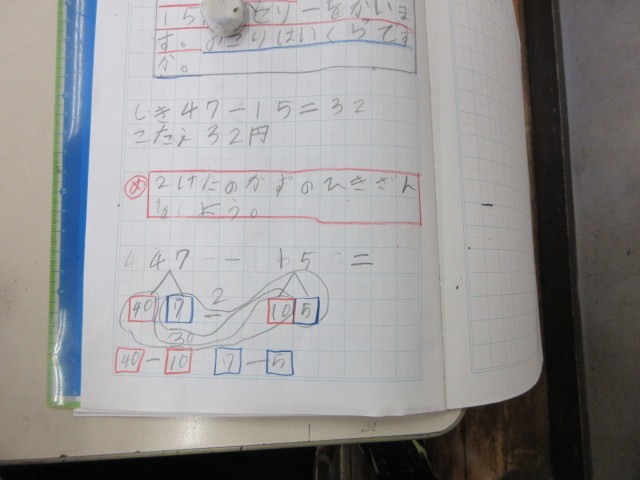 15
す。おつりはいくらです
か。
しき47-15=32
こたえ32円
め 2けたのかずのひきざん
をしよう。
47-15=
40 7 2 10 5
30
40-10 7-5